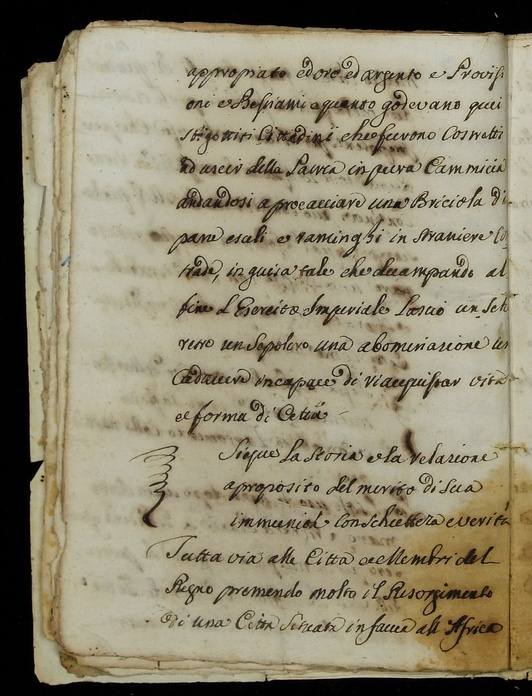 appropiato ed oro ed argento e Provisi
oni e Bestiami e quanto godevano quei
sbigottiti Cittadini che furono Costretti
ad uscir della Patria in pura Cammicia
andandosi a procacciare una Briciola di
pane esuli e raminghi in straniere Co
trade, in guisa tale che decampando al
fine l'Esercito Imperiale Lasciò un
un Sepolcro una abominazione un
Cadavere incapace di riacquistar vita
e forma di Città
Siegue La Storia e la relazione
a proposito del merito di Sua
immunità Con Schiettezza e verità
Tutta via alle Città e Membri del
Regno premendo molto il Risorgimento
di una Città Situata in faccia all Africa